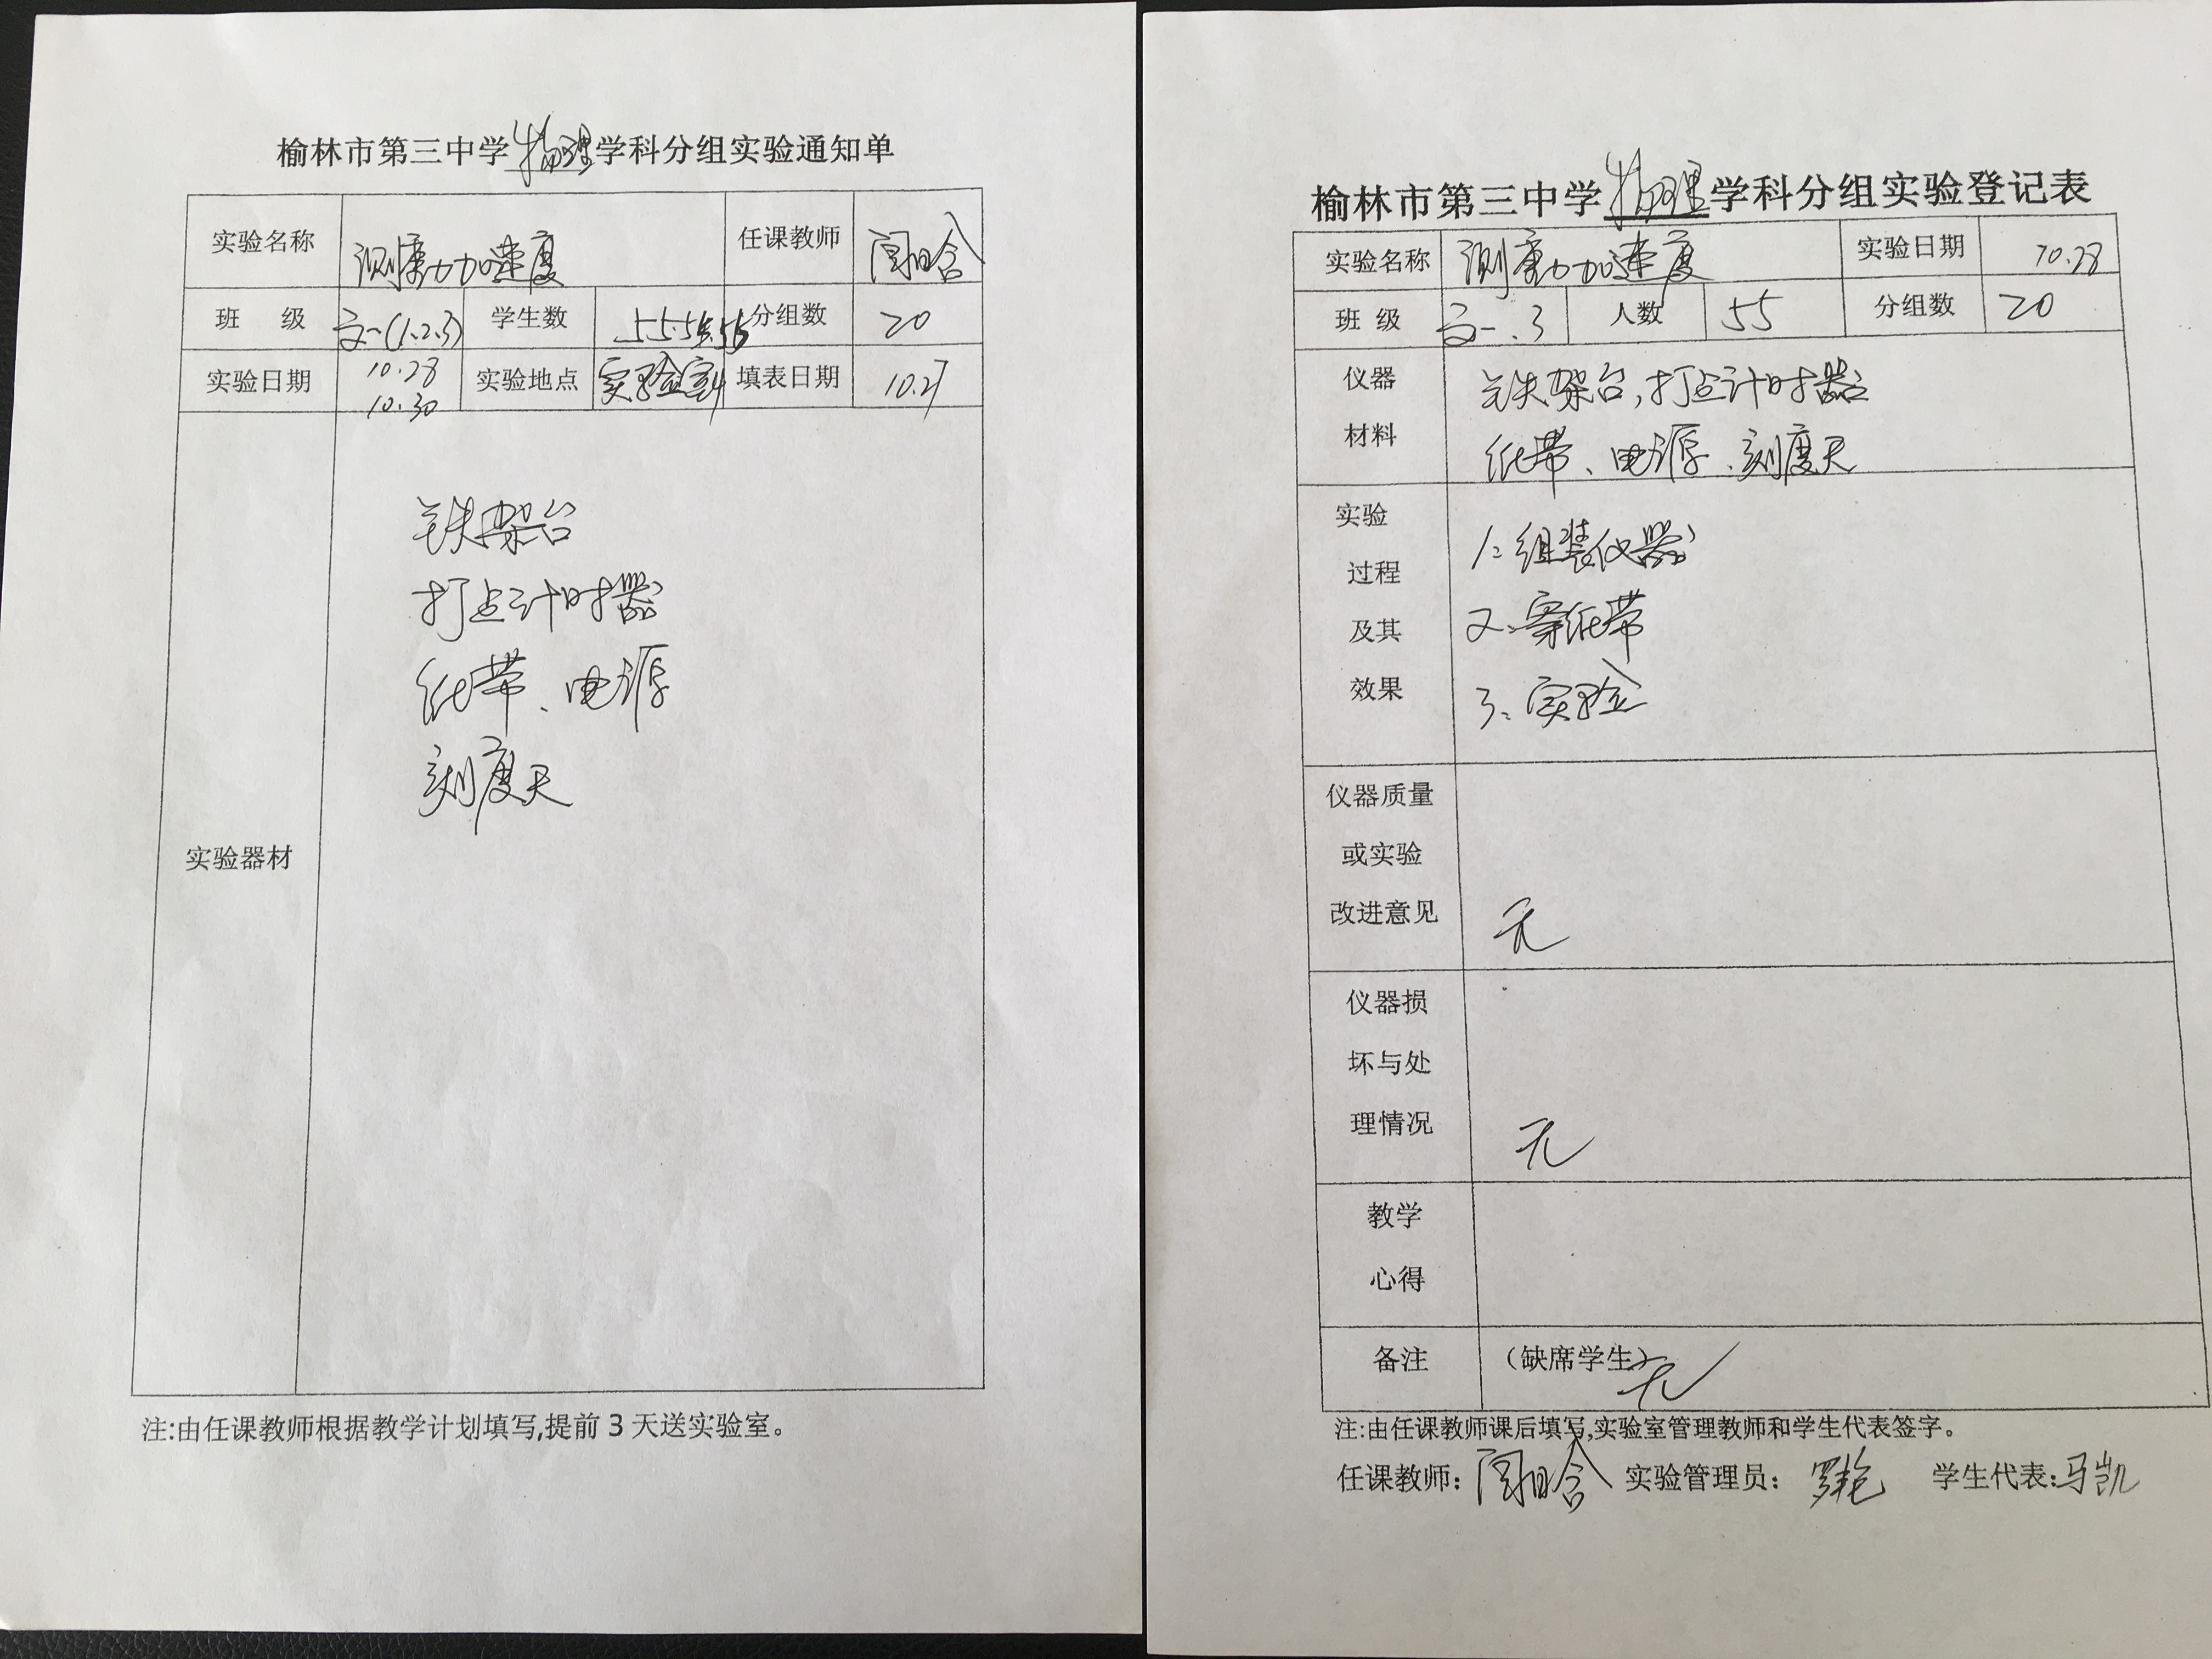 榆林市第三中学物理学科分组实验通知单
实验名称 测重力加速度 任课教师
班 级 高一(1.2.3) 学生数 55.55.55 分组数 20
实验日期 10.28 10.30 实验地点 实验室4 填表日期 10.27
实验器材
铁架台
打点计时器
纸带、电源
刻度尺
注:由任课教师根据教学计划填写,提前3天送实验室。
榆林市第三中学物理学科分组实验登记表
实验名称 测重力加速度 实验日期 10.28
班 级 高一.3 人数 55 分组数 20
仪器 铁架台,打点计时器
材料 纸带、电源、刻度尺
实验 1、组装仪器
过程
及其 2、穿纸带
效果 3、实验
仪器质量
或实验
改进意见 无
仪器损
坏与处
理情况 无
教学
心得
备注 (缺席学生)无
注:由任课教师课后填写,实验室管理教师和学生代表签字。
任课教师: 实验管理员: 罗艳 学生代表:马凯